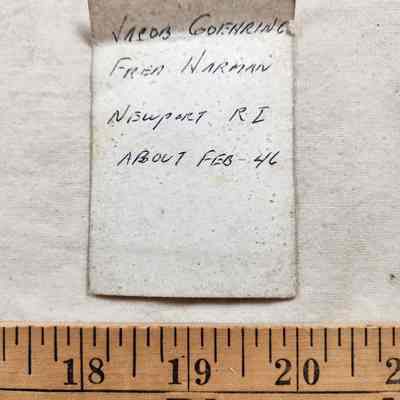 JACOB GOEHRING
FRED HARMAN
NEWPORT RI
ABOUT FEB-46
18 19 20 2